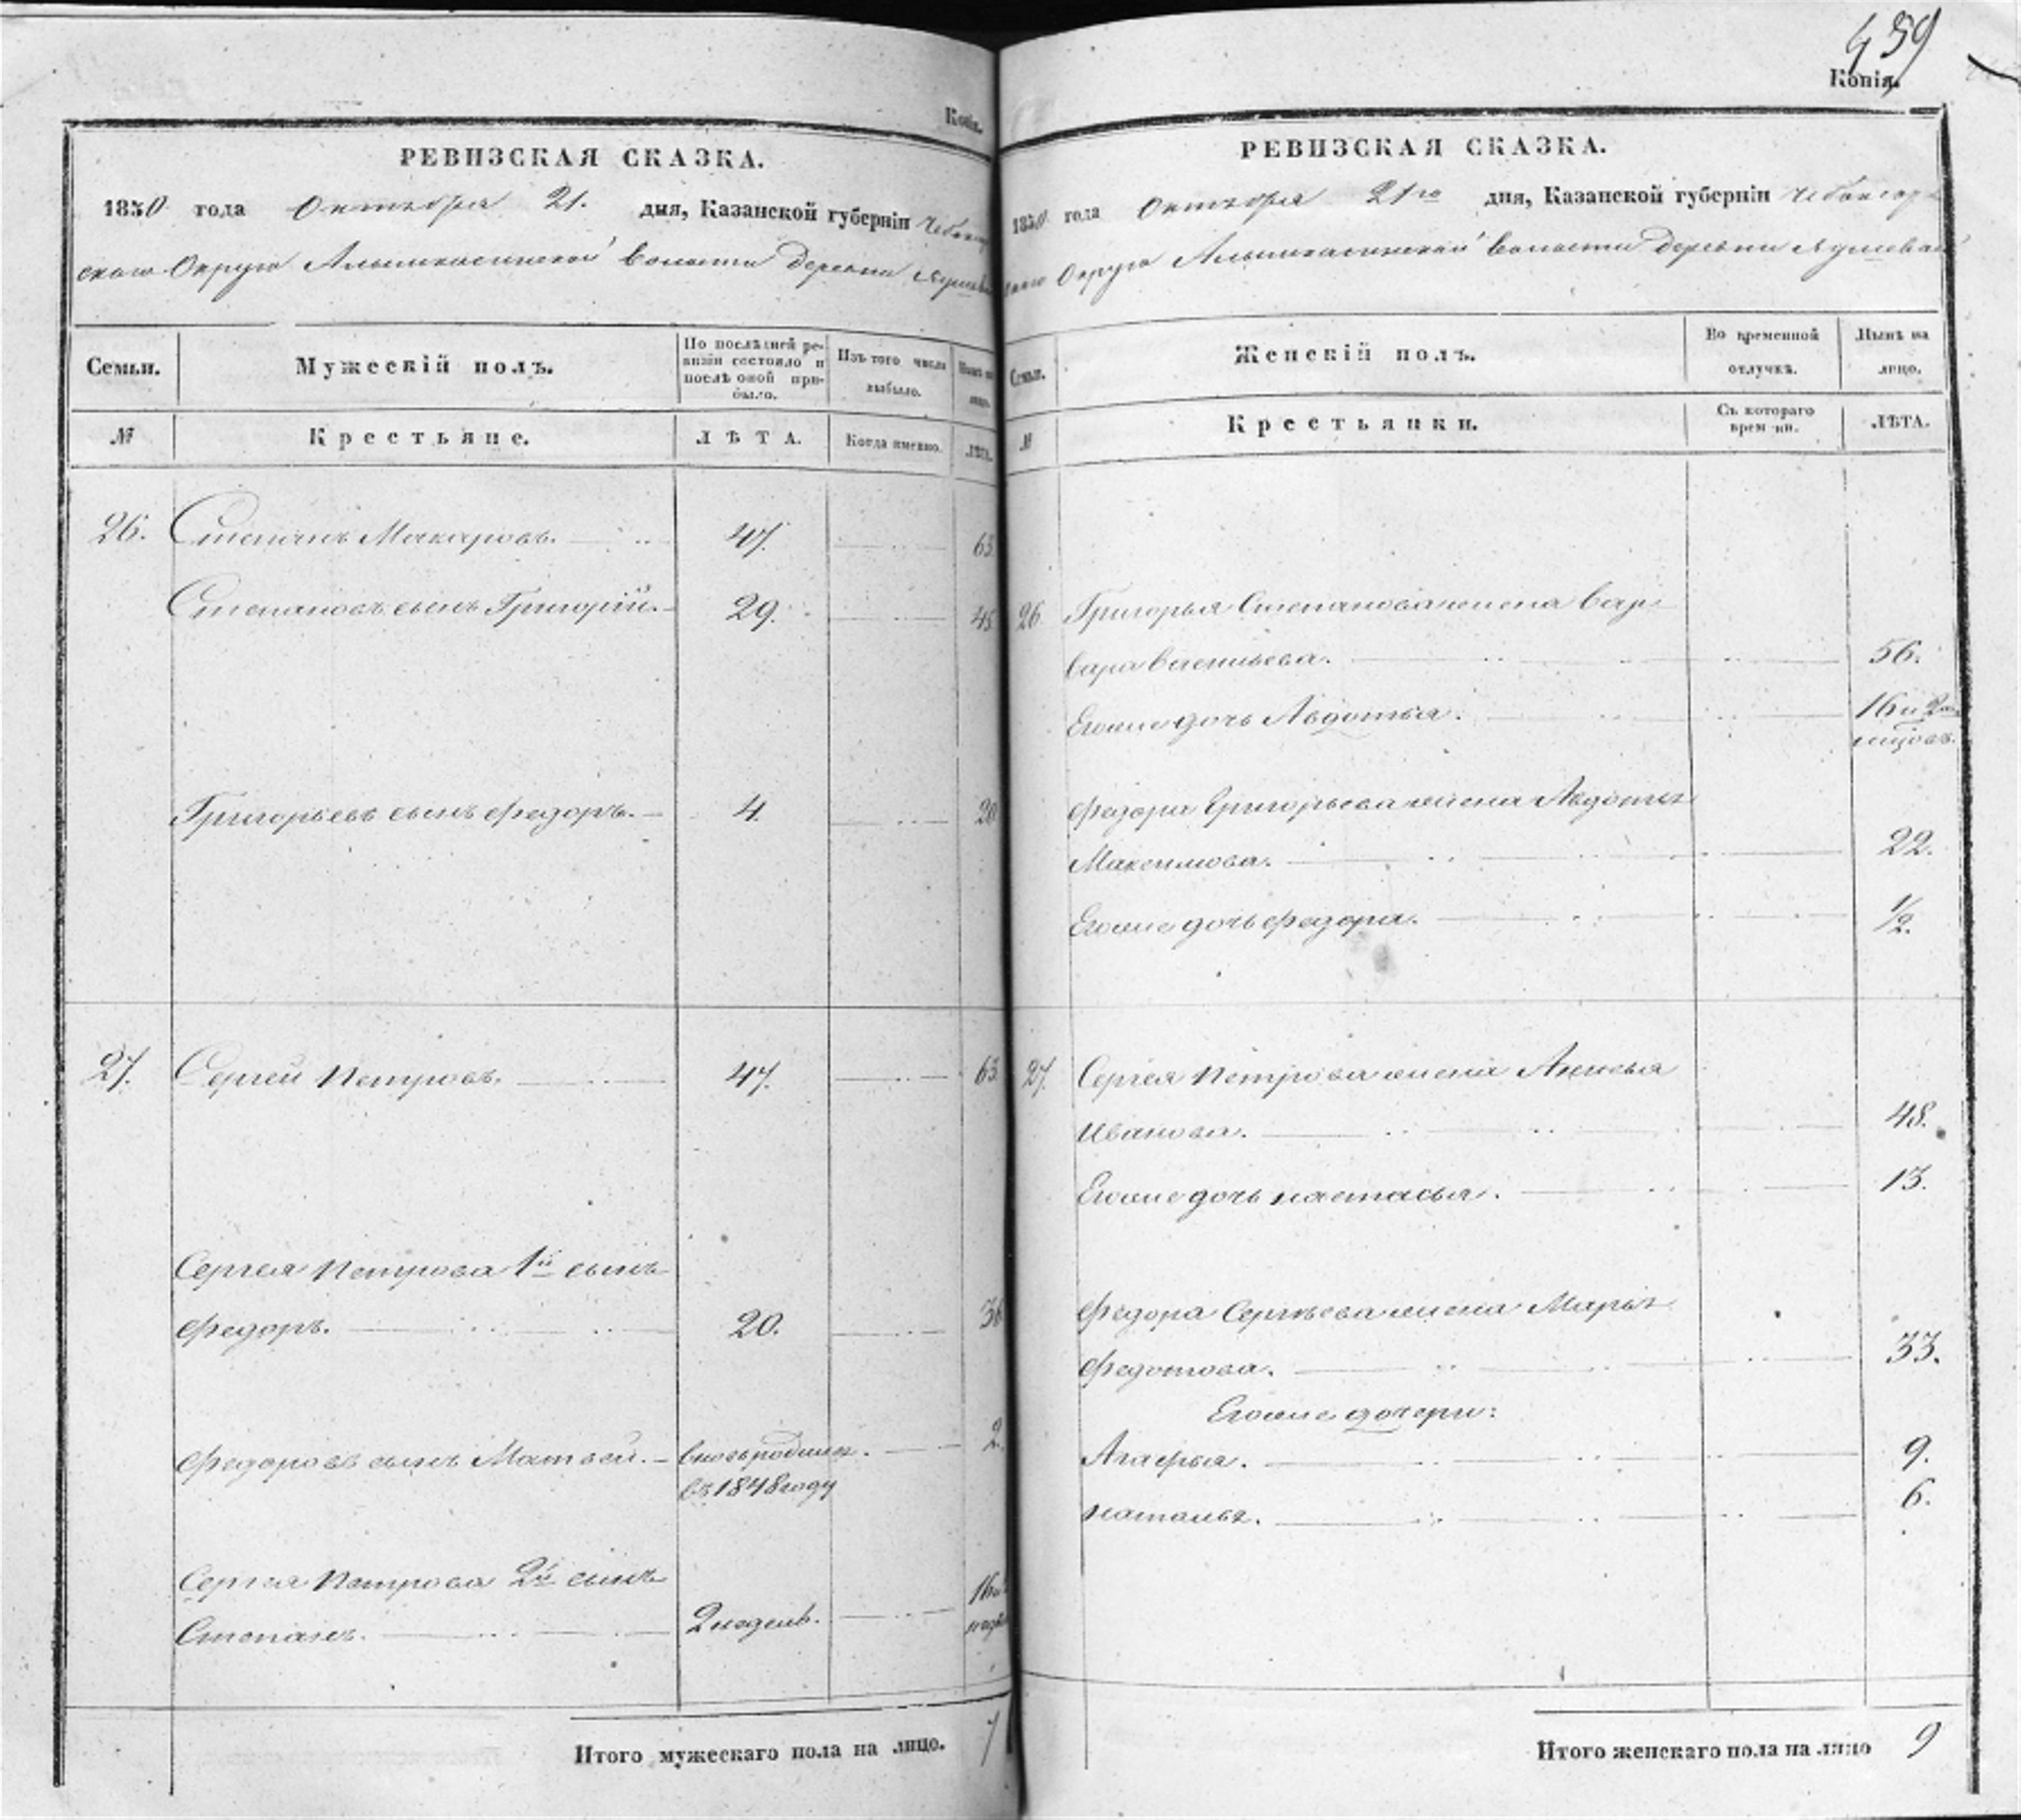 Копія.
РЕВИЗСКАЯ СКАЗКА.
1850 года Октября 21. дня, Казанской губерніи Чебоксар
скаго Округа Алымкасинской волости деревни
Семьи.
Мужескій полъ.
По послѣдней ре-
визіи состояло и
послѣ оной при-
было.
Изъ того числа
выбыло.
Нынѣ на
лицо.
№
Крестьяне.
ЛѢТА.
Когда именно.
ЛѢТА.
26. Степанъ Макаровъ. 47. 63
Степановъ сынъ Григорій. 29. 45
Григорьевъ сынъ Федоръ. 4. 20
27. Сергей Петровъ. 47. 63
Сергея Петрова 1й сынъ
Федоръ. 20. 36
Федоровъ сынъ Матвей. вновь родился. 2.
въ 1848 году
Сергея Петрова 2й сынъ
Степанъ. 2 недель. 16 и
Итого мужескаго пола на лицо. 7
459
Копія.
РЕВИЗСКАЯ СКАЗКА.
1850 года Октября 21го дня, Казанской губерніи Чебоксар
скаго Округа Алымкасинской волости деревни
Семьи.
Женскій полъ.
Во временной
отлучкѣ.
Нынѣ на
лицо.
№
Крестьянки.
Съ котораго
времени.
ЛѢТА.
26 Григорья Степанова жена Вар
вара Васильева. 56.
Егоже дочь Авдотья. 16 и 2
Федора Григорьева жена Авдотья
Максимова. 22.
Егоже дочь Федора. 1/2.
27. Сергея Петрова жена Анисья
Иванова. 48.
Егоже дочь Настасья. 13.
Федора Сергѣева жена Марья
Федотова. 33.
Егоже дочери:
Агафья. 9.
Наталья. 6.
Итого женскаго пола на лицо 9